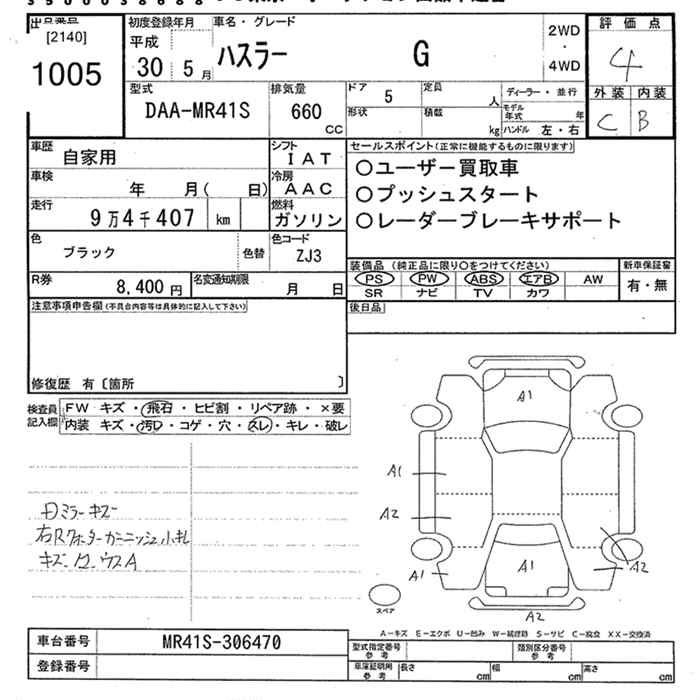 [2140]
1005
初度登録年月
平成
30 5月
車名・グレード
ハスラー G
2WD
・
4WD
評価点
4
外装 内装
C B
型式
DAA-MR41S
排気量
660
CC
ドア
5
定員
人
形状
積載
kg
ディーラー・並行
モデル年式
年
ハンドル 左・右
車歴
自家用
シフト
IAT
車検
年 月( 日)
冷房
AAC
走行
9万4千407 km
燃料
ガソリン
色
ブラック
色替
色コード
ZJ3
R券
8,400 円
名変通知期限
月 日
セールスポイント(正常に機能するものに限ります)
○ユーザー買取車
○プッシュスタート
○レーダーブレーキサポート
装備品 (純正品に限り○をつけてください)
PS PW ABS エアB AW
SR ナビ TV カワ
新車保証書
有・無
後日品
注意事項申告欄(不具合内容等は具体的に記入して下さい)
修復歴 有〔箇所 〕
検査員記入欄
FW キズ・飛石・ヒビ割・リペア跡・×要
内装 キズ・汚れ・コゲ・穴・スレ・キレ・破レ
ミラーキズ
キズ
A1
A1
A2
A1
A1
A2
A2
スペア
A-キズ E-エクボ U-凹み W-補修跡 S-サビ C-腐食 XX-交換済
車台番号
MR41S-306470
登録番号
型式指定番号
参考
類別区分番号
参考
車庫証明用
参考
長さ cm
幅 cm
高さ cm